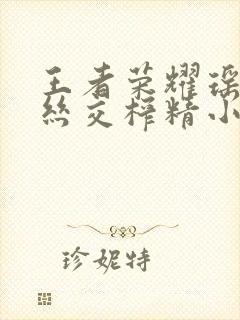 王者荣耀瑶
丝交榨精小
珍妮特